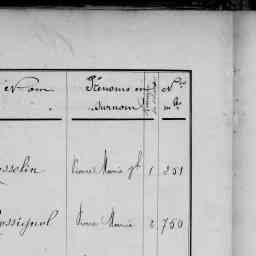 Nom Prénoms ou Nos
surnom mles
osselin Pierre Marie 1 251
ossignol Pierre Marie 2 750